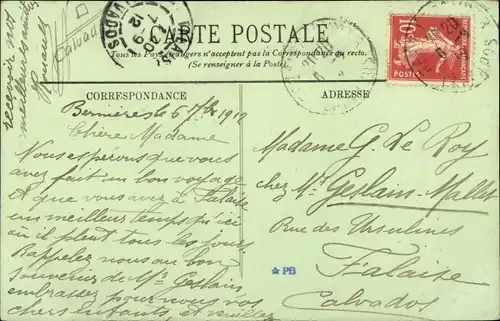 CARTE POSTALE
Tous les Pays étrangers n'acceptent pas la Correspondance au recto.
(Se renseigner à la Poste).
CORRESPONDANCE
ADRESSE
Bernières le 6 7bre 1912
Chère Madame
Nous espérons que vous
avez fait un bon voyage
et que vous avez à Falaise
un meilleur temps qu'ici
où il pleut tous les jours.
Rappelez nous au bon
souvenir de Mr Geslain,
embrassez pour nous vos
chers enfants, et veuillez
recevoir nos
meilleures amitiés
Calvados
Madame G. Le Roy
chez Mr Geslain-Mallet
Rue des Ursulines
Falaise
Calvados
PB
10
POSTES